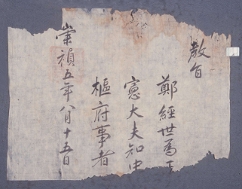 敎旨
鄭經世爲正
憲大夫知中
樞府事者
崇禎五年八月十五日